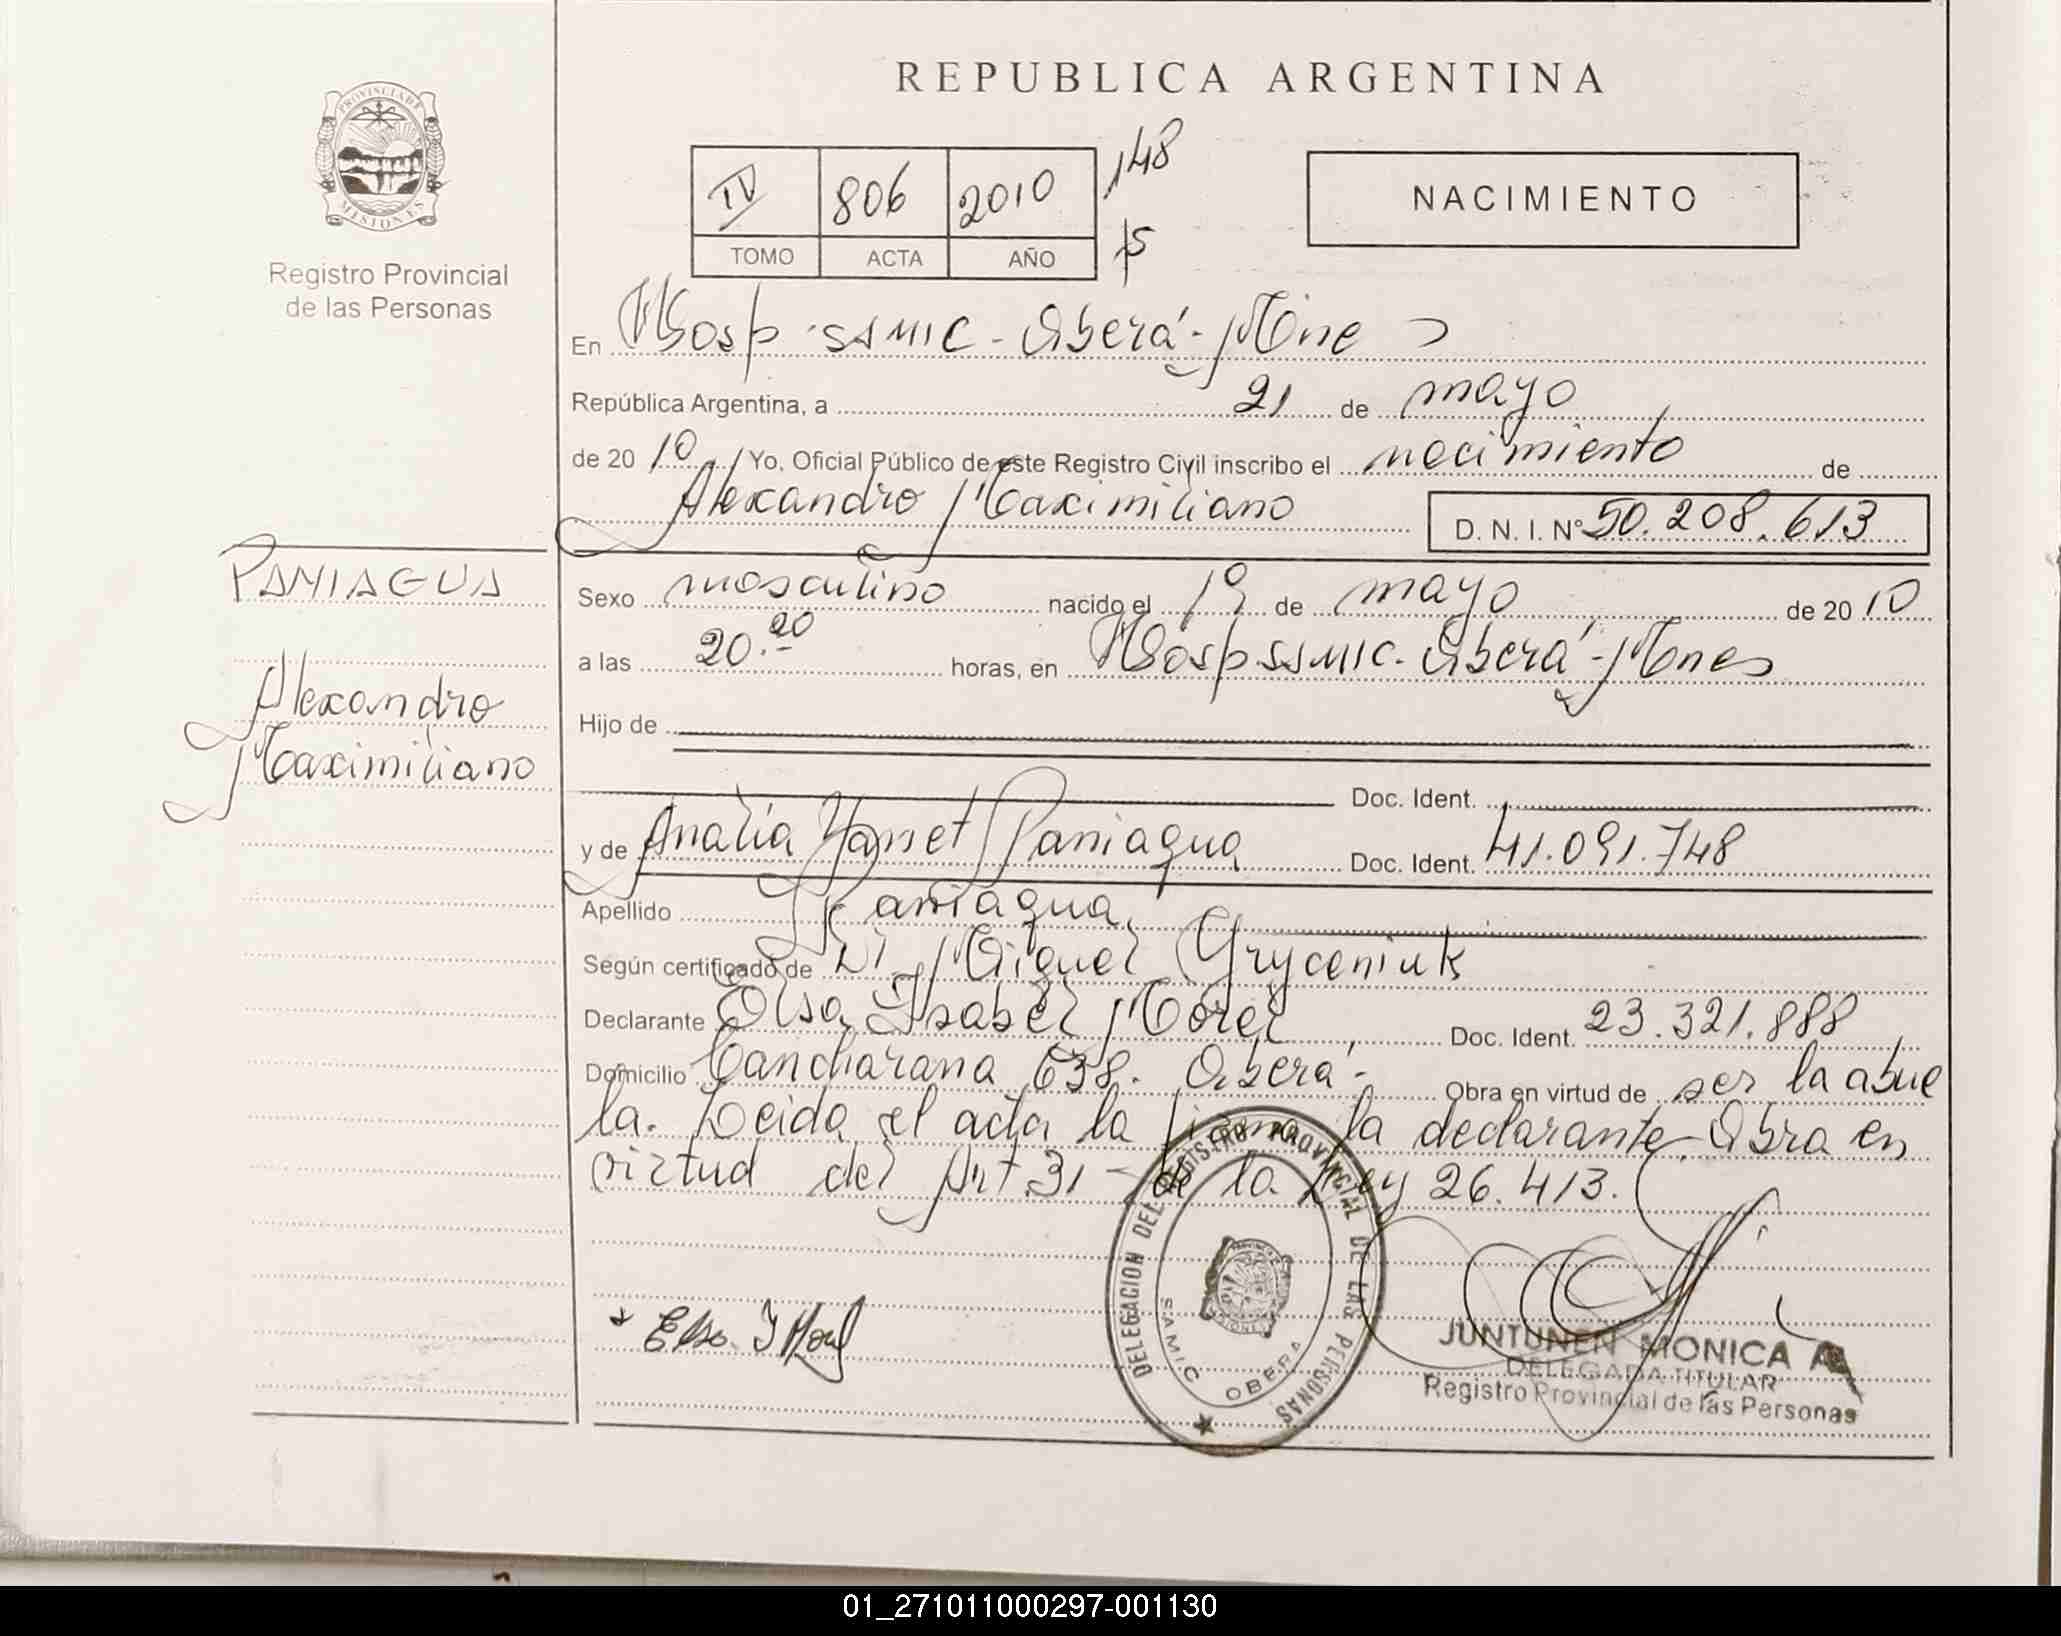 REPUBLICA ARGENTINA
PROVINCIA DE MISIONES
Registro Provincial
de las Personas
IV 806 2010 148
TOMO ACTA AÑO
NACIMIENTO
En Hosp. SAMIC - Oberá - Mnes
República Argentina, a 21 de mayo
de 20 10 Yo, Oficial Público de este Registro Civil inscribo el nacimiento de
Alexandro Maximiliano D. N. I. Nº 50.208.613
PANIAGUA
Alexandro
Maximiliano
Sexo masculino nacido el 19 de mayo de 20 10
a las 20.20 horas, en Hosp SAMIC - Oberá - Mnes
Hijo de
Doc. Ident.
y de Analia Yanet Paniagua Doc. Ident. 41.091.748
Apellido Paniagua
Según certificado de Dr Miguel Gryceniuk
Declarante Elsa Isabel Morel Doc. Ident. 23.321.888
Domicilio Cancharana 638. Oberá - Obra en virtud de ser la abue
la. Leida el acta la firma la declarante. Obra en
virtud del Art. 31 - de la Ley 26.413.
Elsa I Morel
DELEGACION DEL REGISTRO PROVINCIAL DE LAS PERSONAS
SAMIC OBERA
JUNTUNEN MONICA A
DELEGADA TITULAR
Registro Provincial de las Personas
01_271011000297-001130